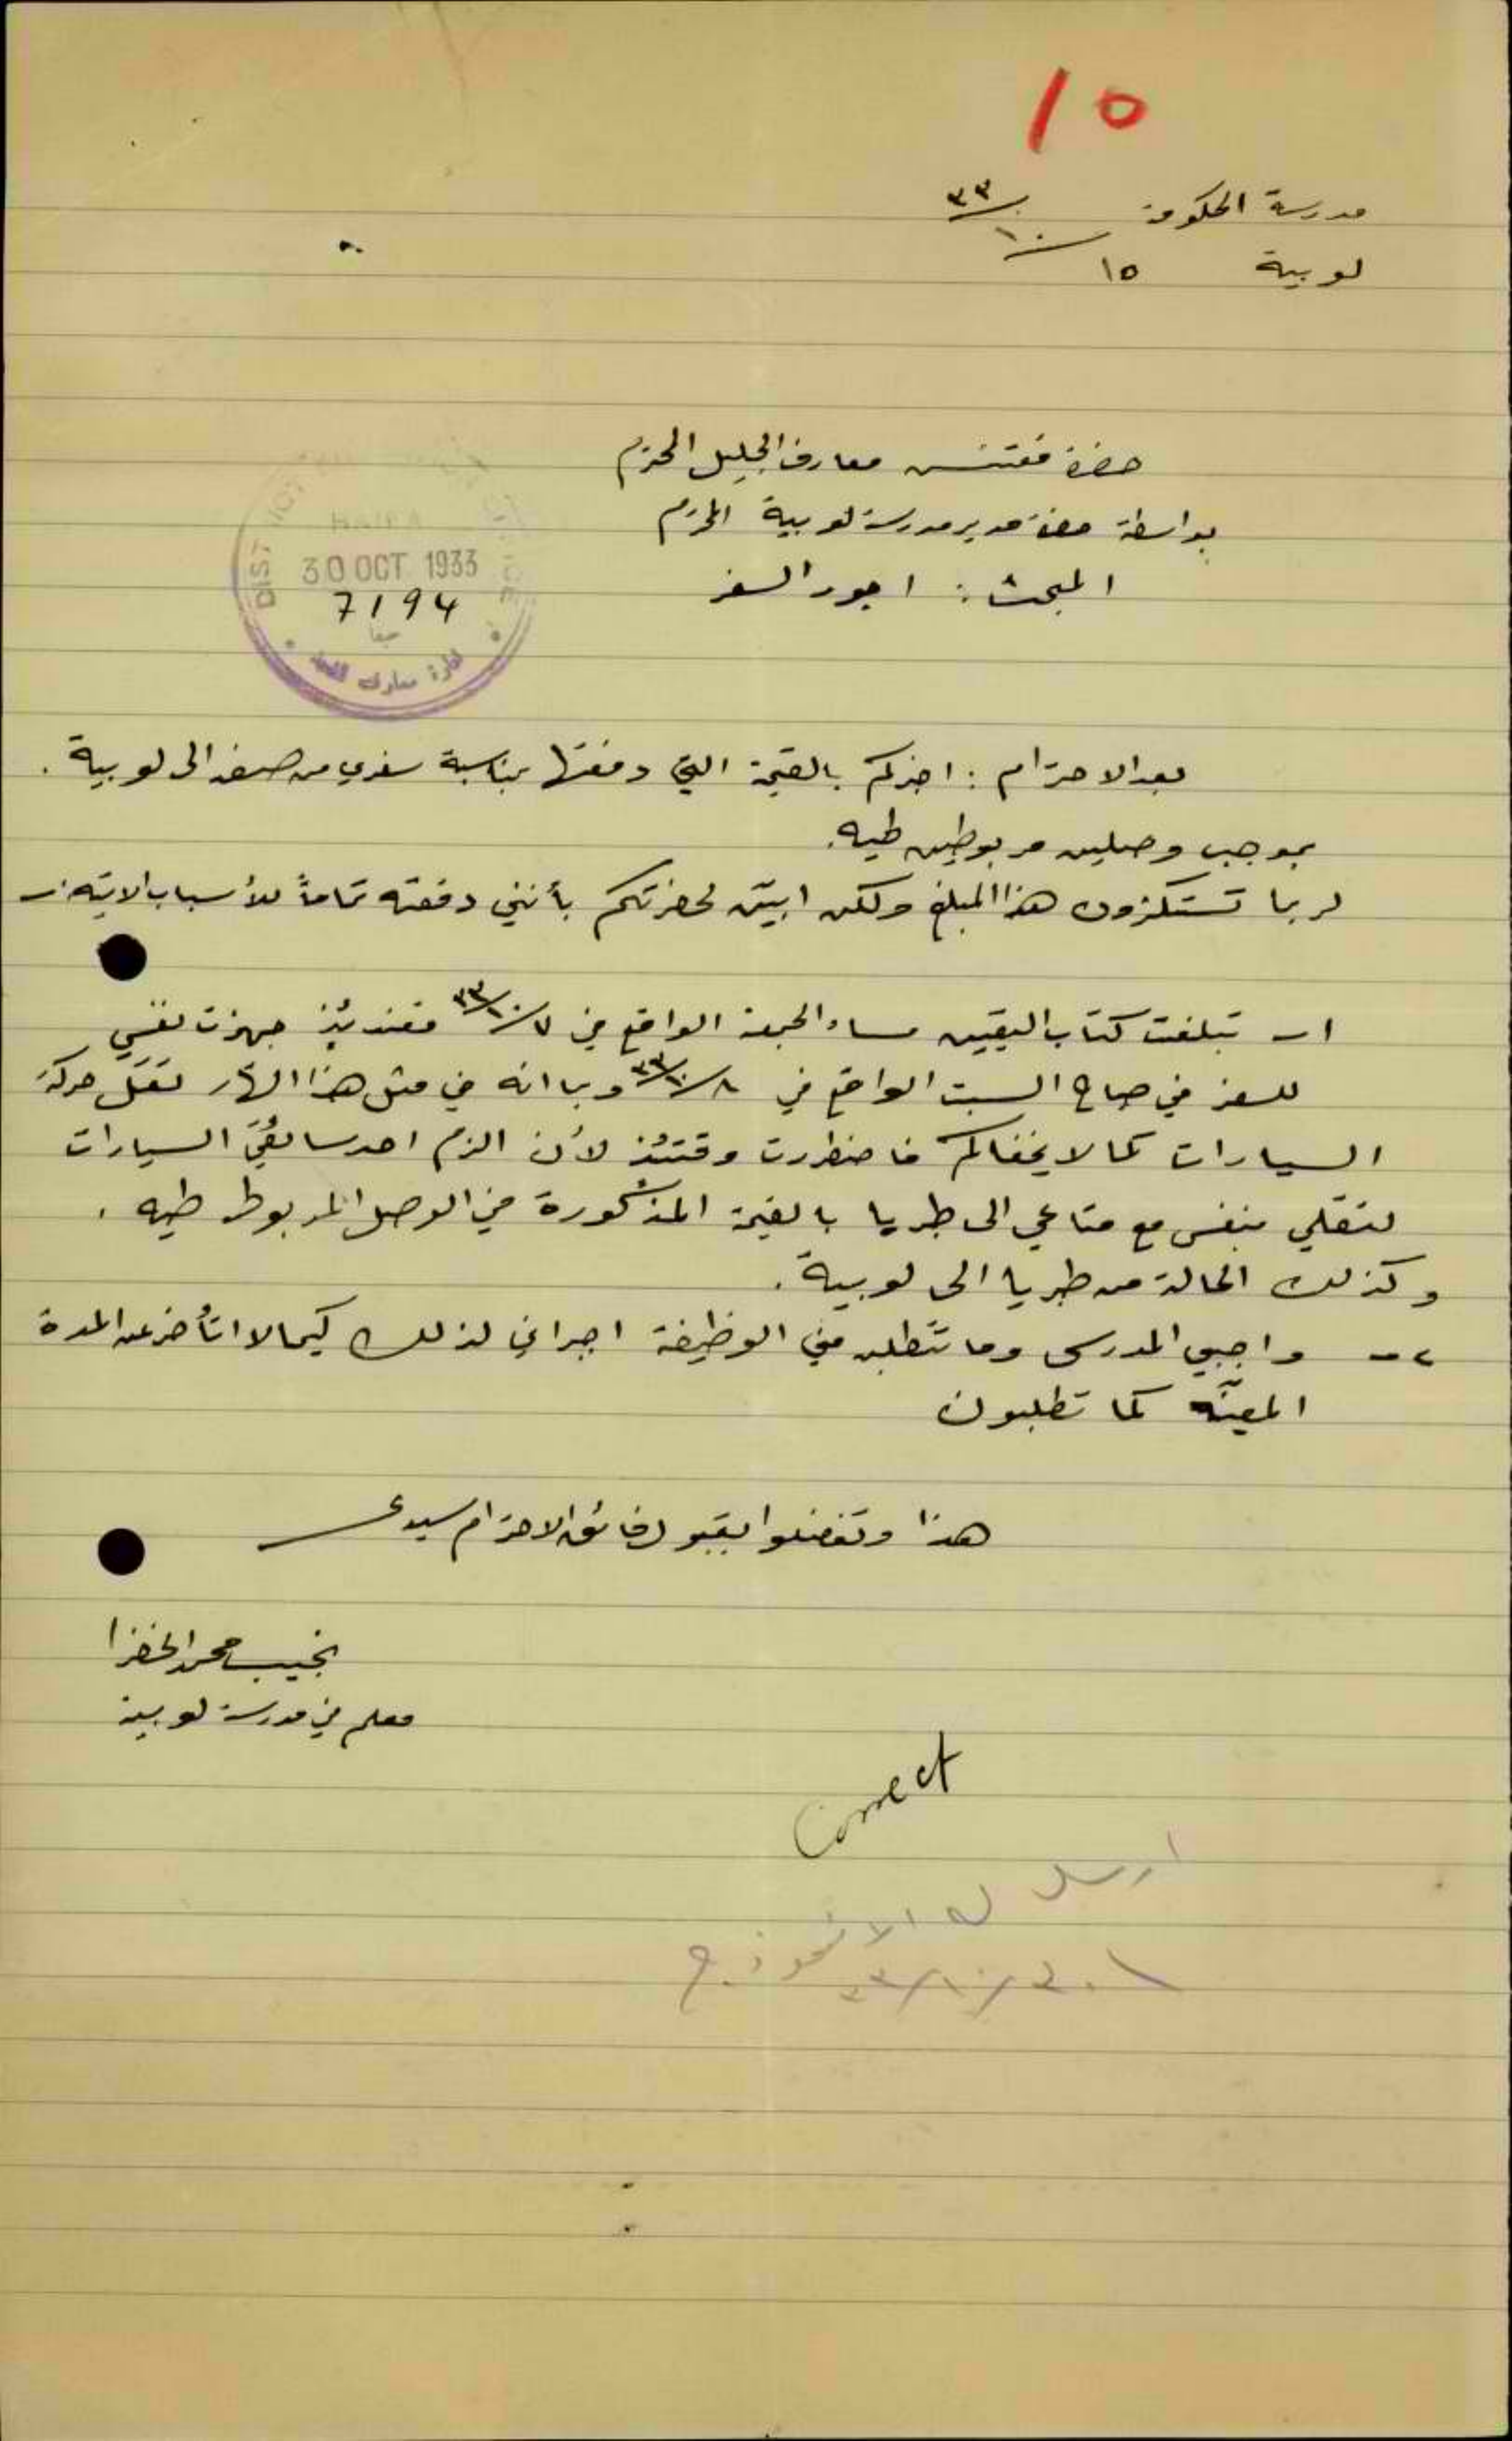 10
مدرسة الحكومة ١٥/١٠/٣٣
لوبية
حضرة مفتش معارف الجليل المحترم
بواسطة حضرة مدير مدرسة لوبية المحترم
المبحث : اجور السفر
HAIFA
30 OCT 1933
7194
حيفا
ادارة معارف اللواء
بعد الاحترام : اخبركم بالقيمة التي دفعتها بمناسبة سفري من صفد الى لوبية .
بموجب وصلين مربوطين طيه.
لربما تستكثرون هذا المبلغ ولكن ابيّن لحضرتكم بأنني دفعته تماماً للأسباب الاتية :-
١- تبلغت كتاب التعيين مساء الجمعة الواقع في ٧/١٠/٣٣ فعندئذٍ جهزت نفسي
للسفر في صباح السبت الواقع في ٨/١٠/٣٣ وبما انه في مثل هذا النهار تقل حركة
السيارات كما لا يخفاكم فاضطررت وقتئذ لأن الزم احد سائقي السيارات
لنقلي بنفسي مع متاعي الى طبريا بالقيمة المذكورة في الوصل المربوط طيه .
وكذلك الحالة من طبريا الى لوبية .
٢- واجبي المدرسي وما تتطلبه مني الوظيفة اجبراني لذلك كيما لا اتأخر عن المدة
المعيّنة كما تطلبون
هذا وتفضلوا بقبول فائق الاحترام سيدي
نجيب محمد الخضرا
معلم في مدرسة لوبية
Correct
ارسل له الانموذج
٣٠/١٠/٣٣